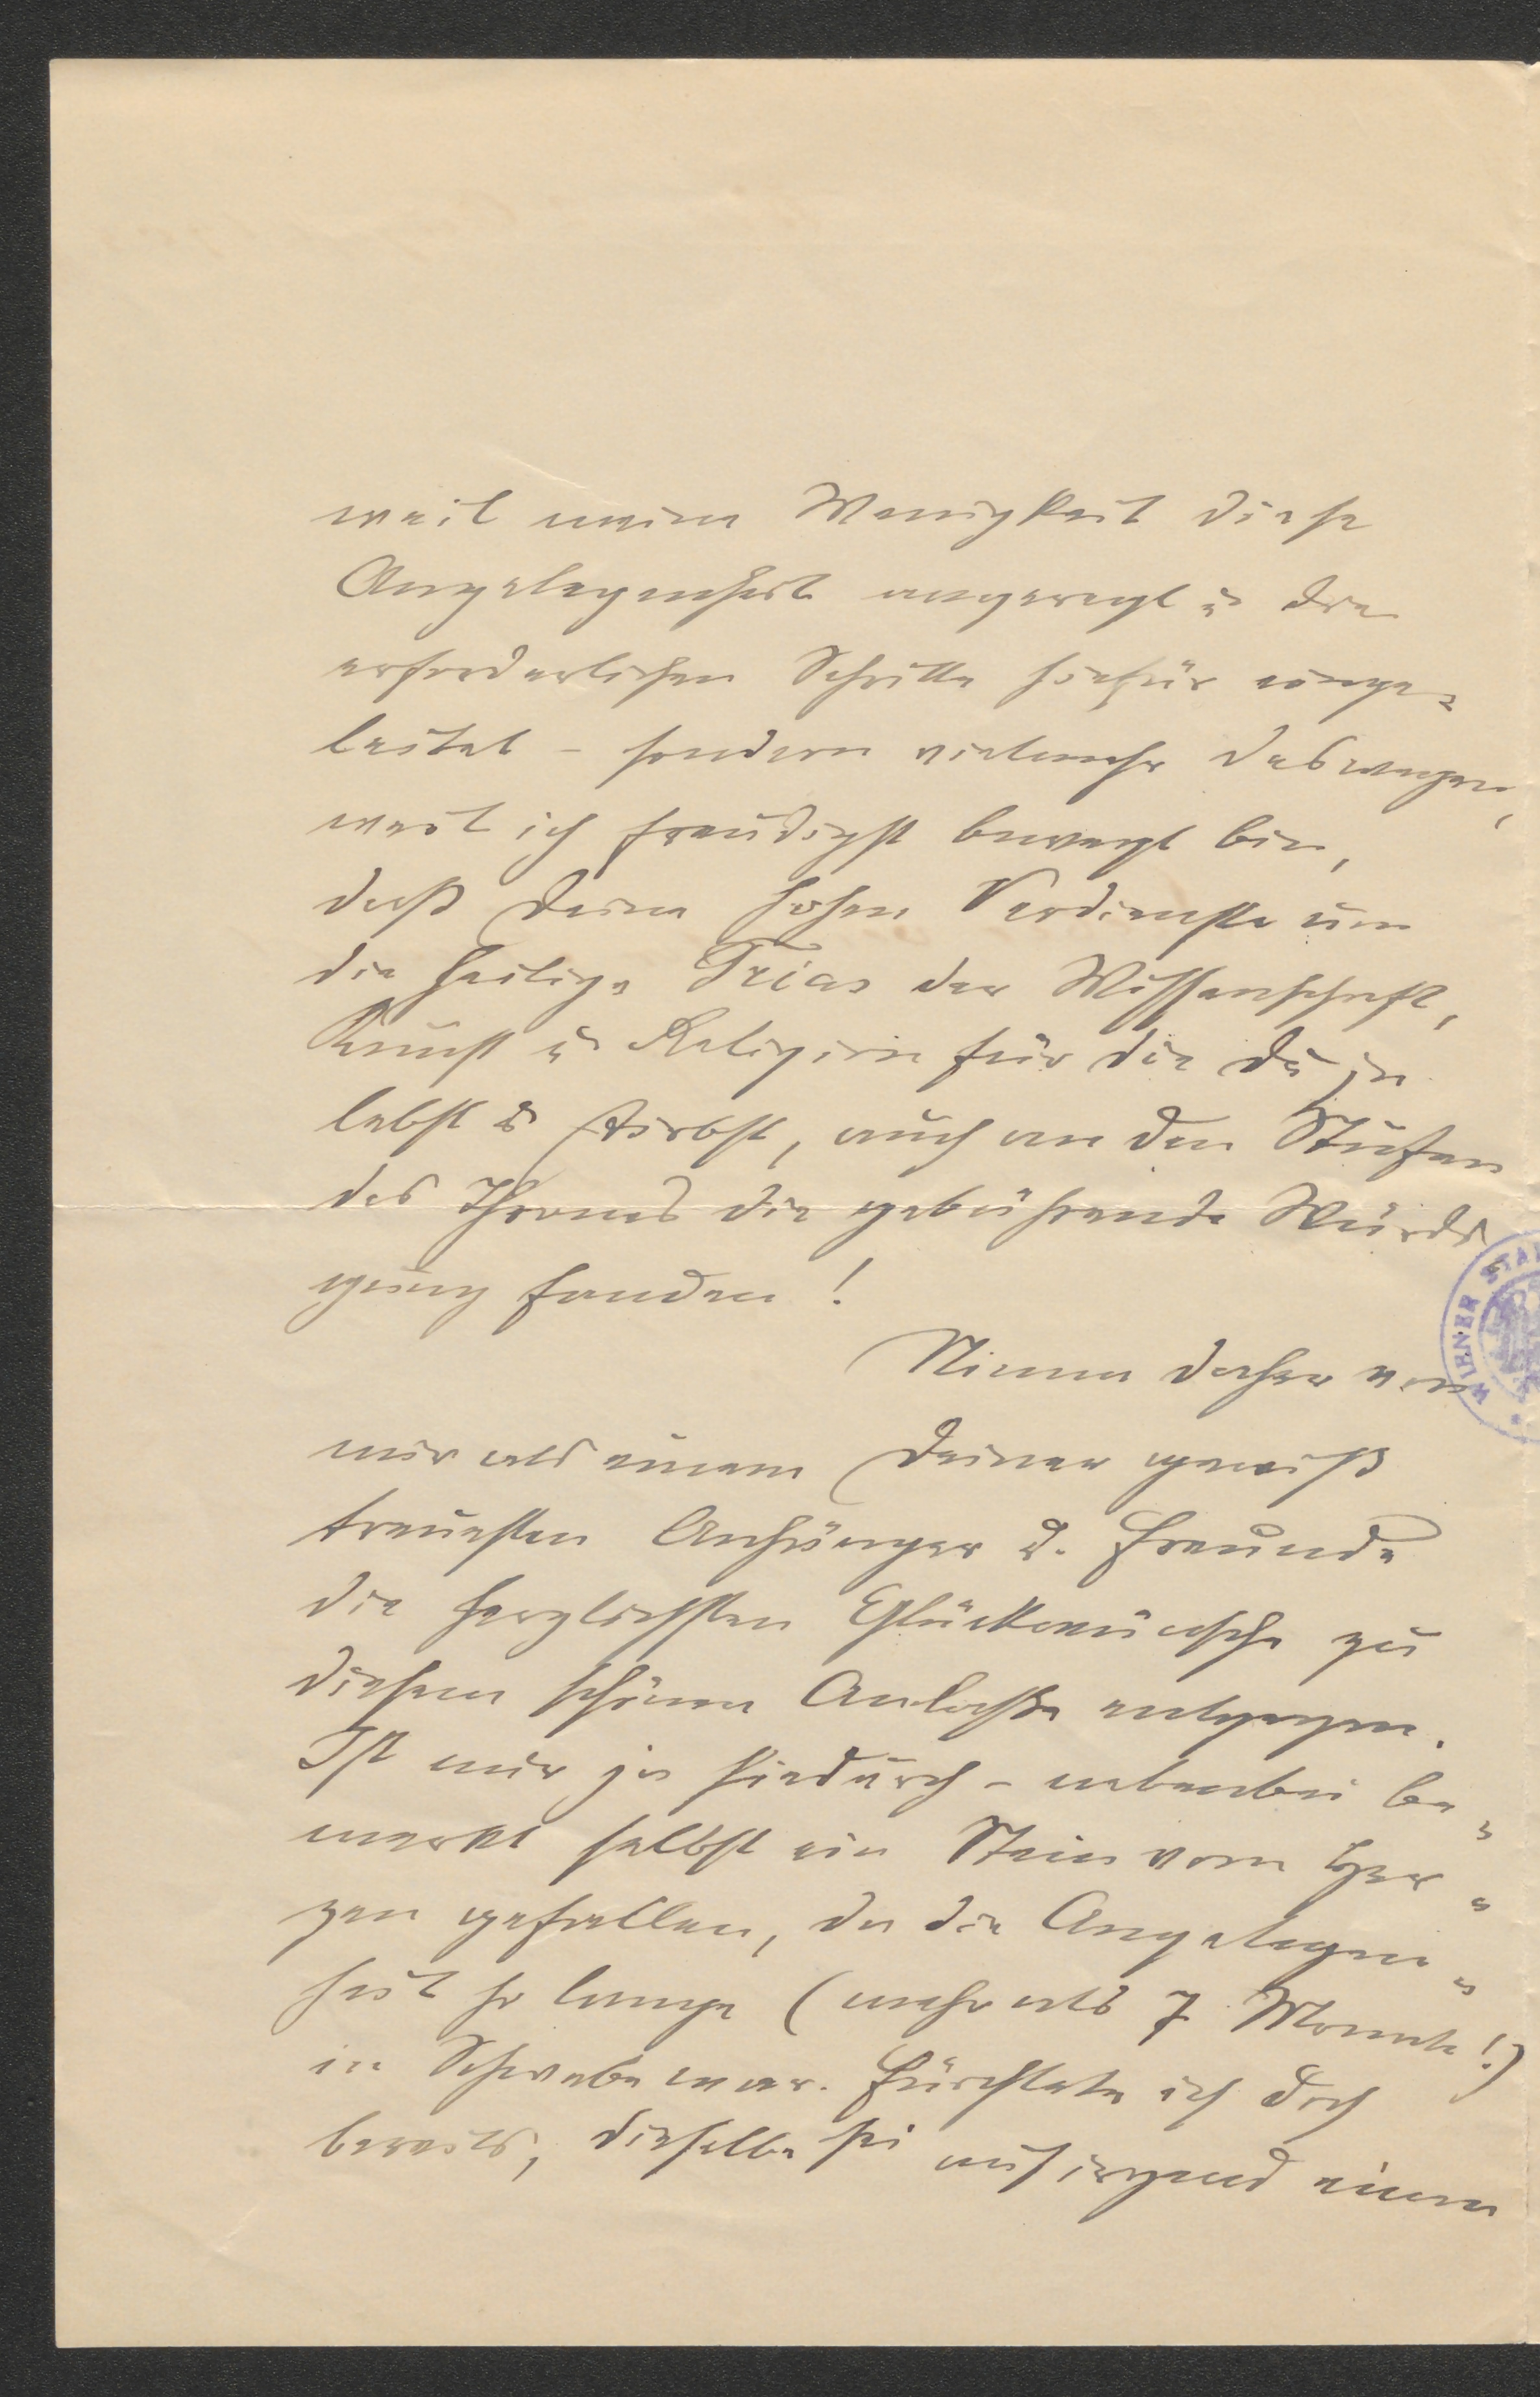 weil meine Wenigkeit diese
Angelegenheit angeregt u die
erforderlichen Schritte hiefür einge-
leitet – sondern vielmehr deswegen,
weil ich freudigst bewegt bin,
daß Deine hohen Verdienste um
die heilige Trias der Wissenschaft,
Kunst u Religion für die Du ja
lebst u stirbst, auch an den Stufen
des Thrones die gebührende Würdi
gung fanden!
Nimm daher von
mir als einem Deiner gewiß
treuesten Anhänger u. Freunde
die herzlichsten Glückwünsche zu
diesem schönen Anlaße entgegen.
Ist mir ja hiedurch – nebenbei be-
merkt selbst ein Stein vom Her-
zen gefallen, da die Angelegen-
heit so lange (mehr als 7 Monate!)
in Schwebe war. Fürchtete ich doch
bereits, dieselbe sei auf irgend einen
WIENER STA